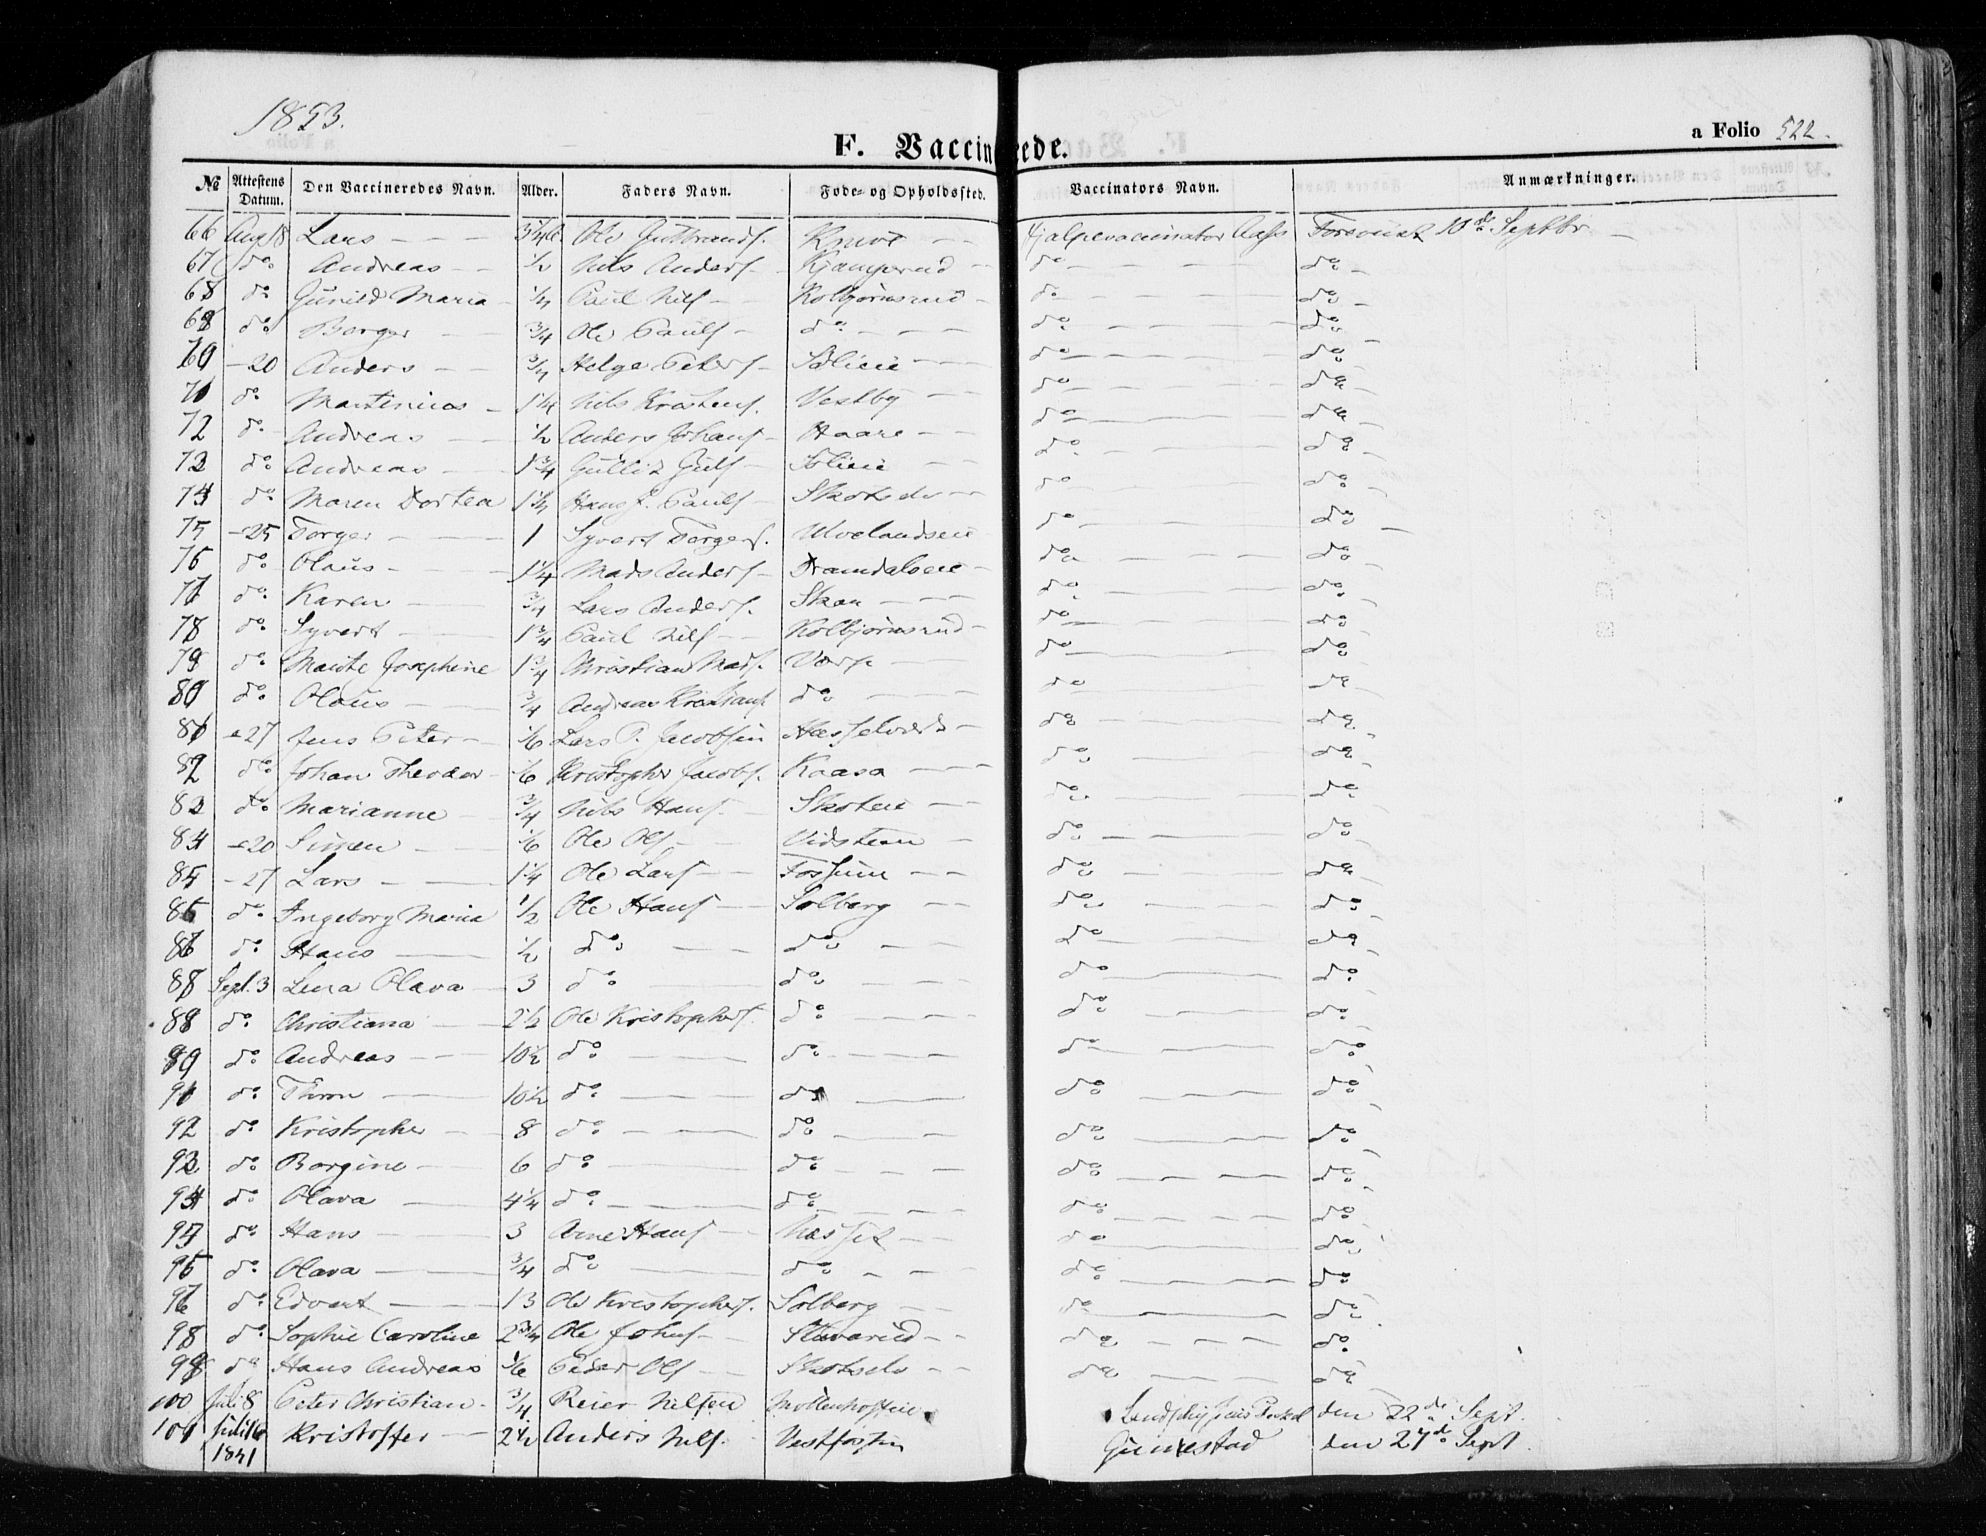 1853.
F. Vaccinerede.
a Folio 522.
№ Attestens Datum. Den Vaccineredes Navn. Alder. Faders Navn. Føde- og Opholdssted. Vaccinators Navn. Anmærkninger.
66 Aug 18 Lars Ole Gulbrands. Hjælpevaccinator Aass 10de Septbr
67 do Andreas 1/2 Nils Anders. Kjæmperud do do
68 do Gunild Maria Paul Nils. Kolbjørnsrud do do
69 do Borger 3/4 Ole Pauls. do do do
70 -20 Anders 3/4 Helge Peters. do do
71 do Martinius 1 1/4 Nils Vestby do do
72 do Andreas 1/2 Anders Johans. Haare do do
73 do Andreas 1 3/4 do do
74 do Maren Dortea 1 1/4 Hans P. Pauls. Skotselv do do
75 -25 Torger 1 Syvert Torgers. Ulvelandseie do do
76 do Olaus 1 1/4 Mads Anders. Dramdalseie do do
77 do Karen 3/4 Lars Anders. Skau do do
78 do Syvert 1 3/4 Paul Nils. Kolbjørnsrud do do
79 do Josephine 1 3/4 Christian Mads. do do
80 do Olaus 3/4 Andreas Kristians. do do do
81 -27 Jens Peter 1/6 Lars P. Jacobsen do do
82 do Johan Theodor 1/6 Kristopher Jacobs. Kaasa do do
83 do Marianne 3/4 Nils Hans. Skoteie do do
84 -20 Simen 1/6 Ole Ols. Vidsteen do do
85 -27 Lars 1 1/4 Ole Lars. Fossum do do
86 do Ingeborg Maria 1/2 Ole Hans. Solberg do do
87 do Hans 1/2 do do do do
88 Sept. 3 Lena Olava 3 do do do do
89 do Christiana 2 1/2 Ole Kristophers. do do do
90 do Andreas 10 1/2 do do do do
91 do Thron 10 1/2 do do do do
92 do Kristopher 8 do do do do
93 do Borgine 6 do do do do
94 do Olava 4 1/4 do do do do
95 do Hans 3 Arne Hans. do do
96 do Olava 3/4 do do do do
97 do Edvart 13 Ole Kristophers. Solberg do do
98 do Sophie Caroline 2 3/4 Ole Johns. Stuvarud do do
99 do Hans Andreas 1/6 Peder Ols. Skotselv do do
100 Juli 8 Peter Christian 3/4 Reier Nilsen den 22de Sept.
101 Juli 16 Kristoffer 2 1/2 Anders Nils. Vestfossen Gunnestad den 27de Sept.
1851